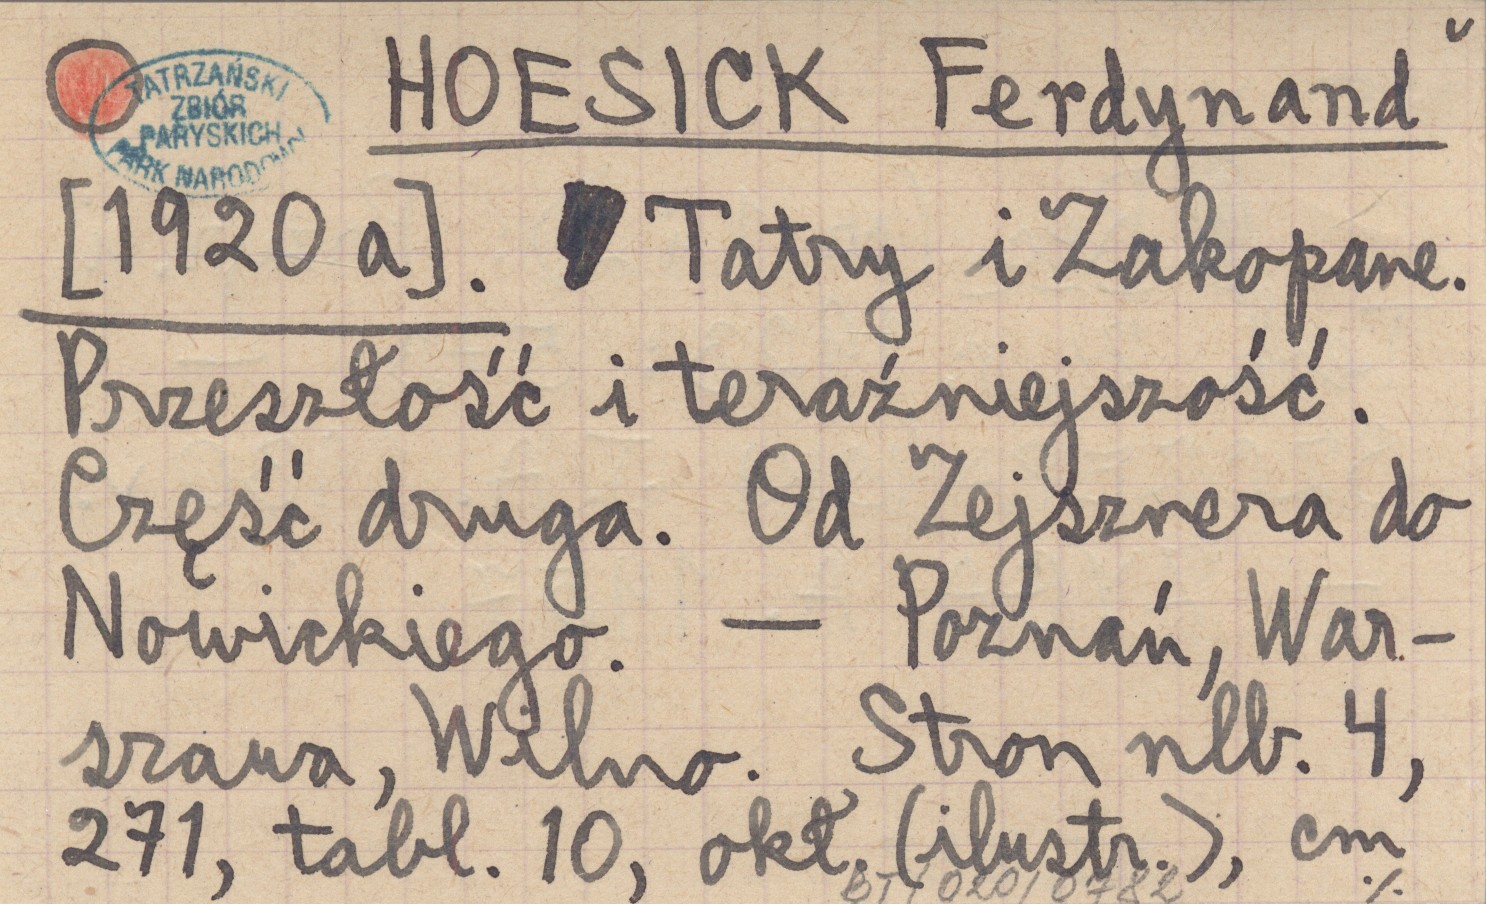 TATRZAŃSKI
ZBIÓR
PARYSKICH
PARK NARODOWY
HOESICK Ferdynand
[1920 a]. Tatry i Zakopane.
Przeszłość i teraźniejszość.
Część druga. Od Zejsznera do
Nowickiego. — Poznań, War-
szawa, Wilno. Stron nlb. 4,
271, tabl. 10, okł. (ilustr.), cm
BT/020/0782
./.